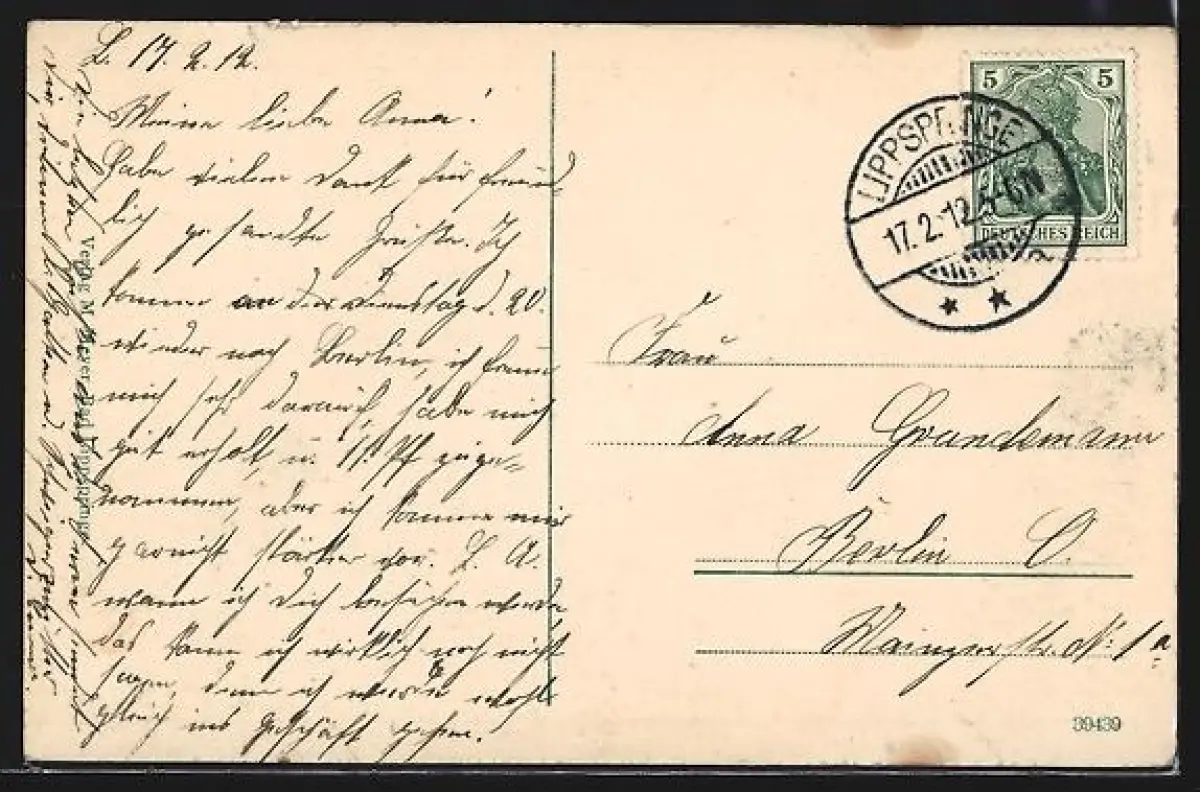 L. 17.2.12.
Meine liebe Anna!
Habe vielen Dank für freund-
lich gesandte Grüße. Ich
komme an den Dienstag d. 20.
wieder nach Berlin, ich freue
mich sehr darauf, habe mich
gut erholt u. 11 Pf zuge-
nommen, aber ich komme mir
garnicht stärker vor. L. A.
wann ich Dich besuchen werde
das kann ich wirklich noch nicht
sagen, denn ich werde wohl
gleich ins Geschäft gehen.
Verlag M. Meyer Bad Lippspringe
5 5
DEUTSCHES REICH
LIPPSPRINGE
17.2.12.5-6N
a
Frau
Anna Grandemann
Berlin O.
Mainzerstr. № 1a
39439